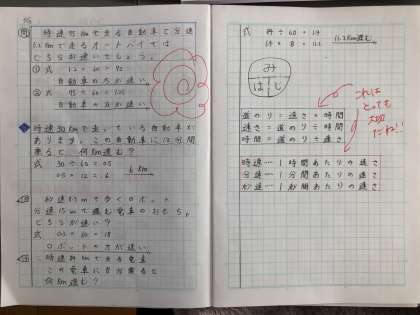 時速75kmで走る自動車と分速
1.2kmで走るオートバイでは
どちらが速いでしょう。
式 1.2×60=72
自動車の方が速い
式 75÷60=1.25
自動車の方が速い
時速30kmで走っている自動車が
あります。この自動車に12分間
乗ると、何km進む?
式 30÷60=0.5
0.5×12=6 6km
で歩くロボットと
分速15mで進む電車のおもちゃ。
どちらが速い?
式 0.3×60=18
ロボットの方が速い
この電車に8分乗ると
何km進む?
式 84÷60=1.4
1.4×8=11.2 11.2km進む
み
は じ
道のり=速さ×時間
速さ=道のり÷時間
時間=道のり÷速さ
これは
とっても
大切
だね!!
時速…1時間あたりの速さ
分速…1分間あたりの速さ
秒速…1秒間あたりの速さ